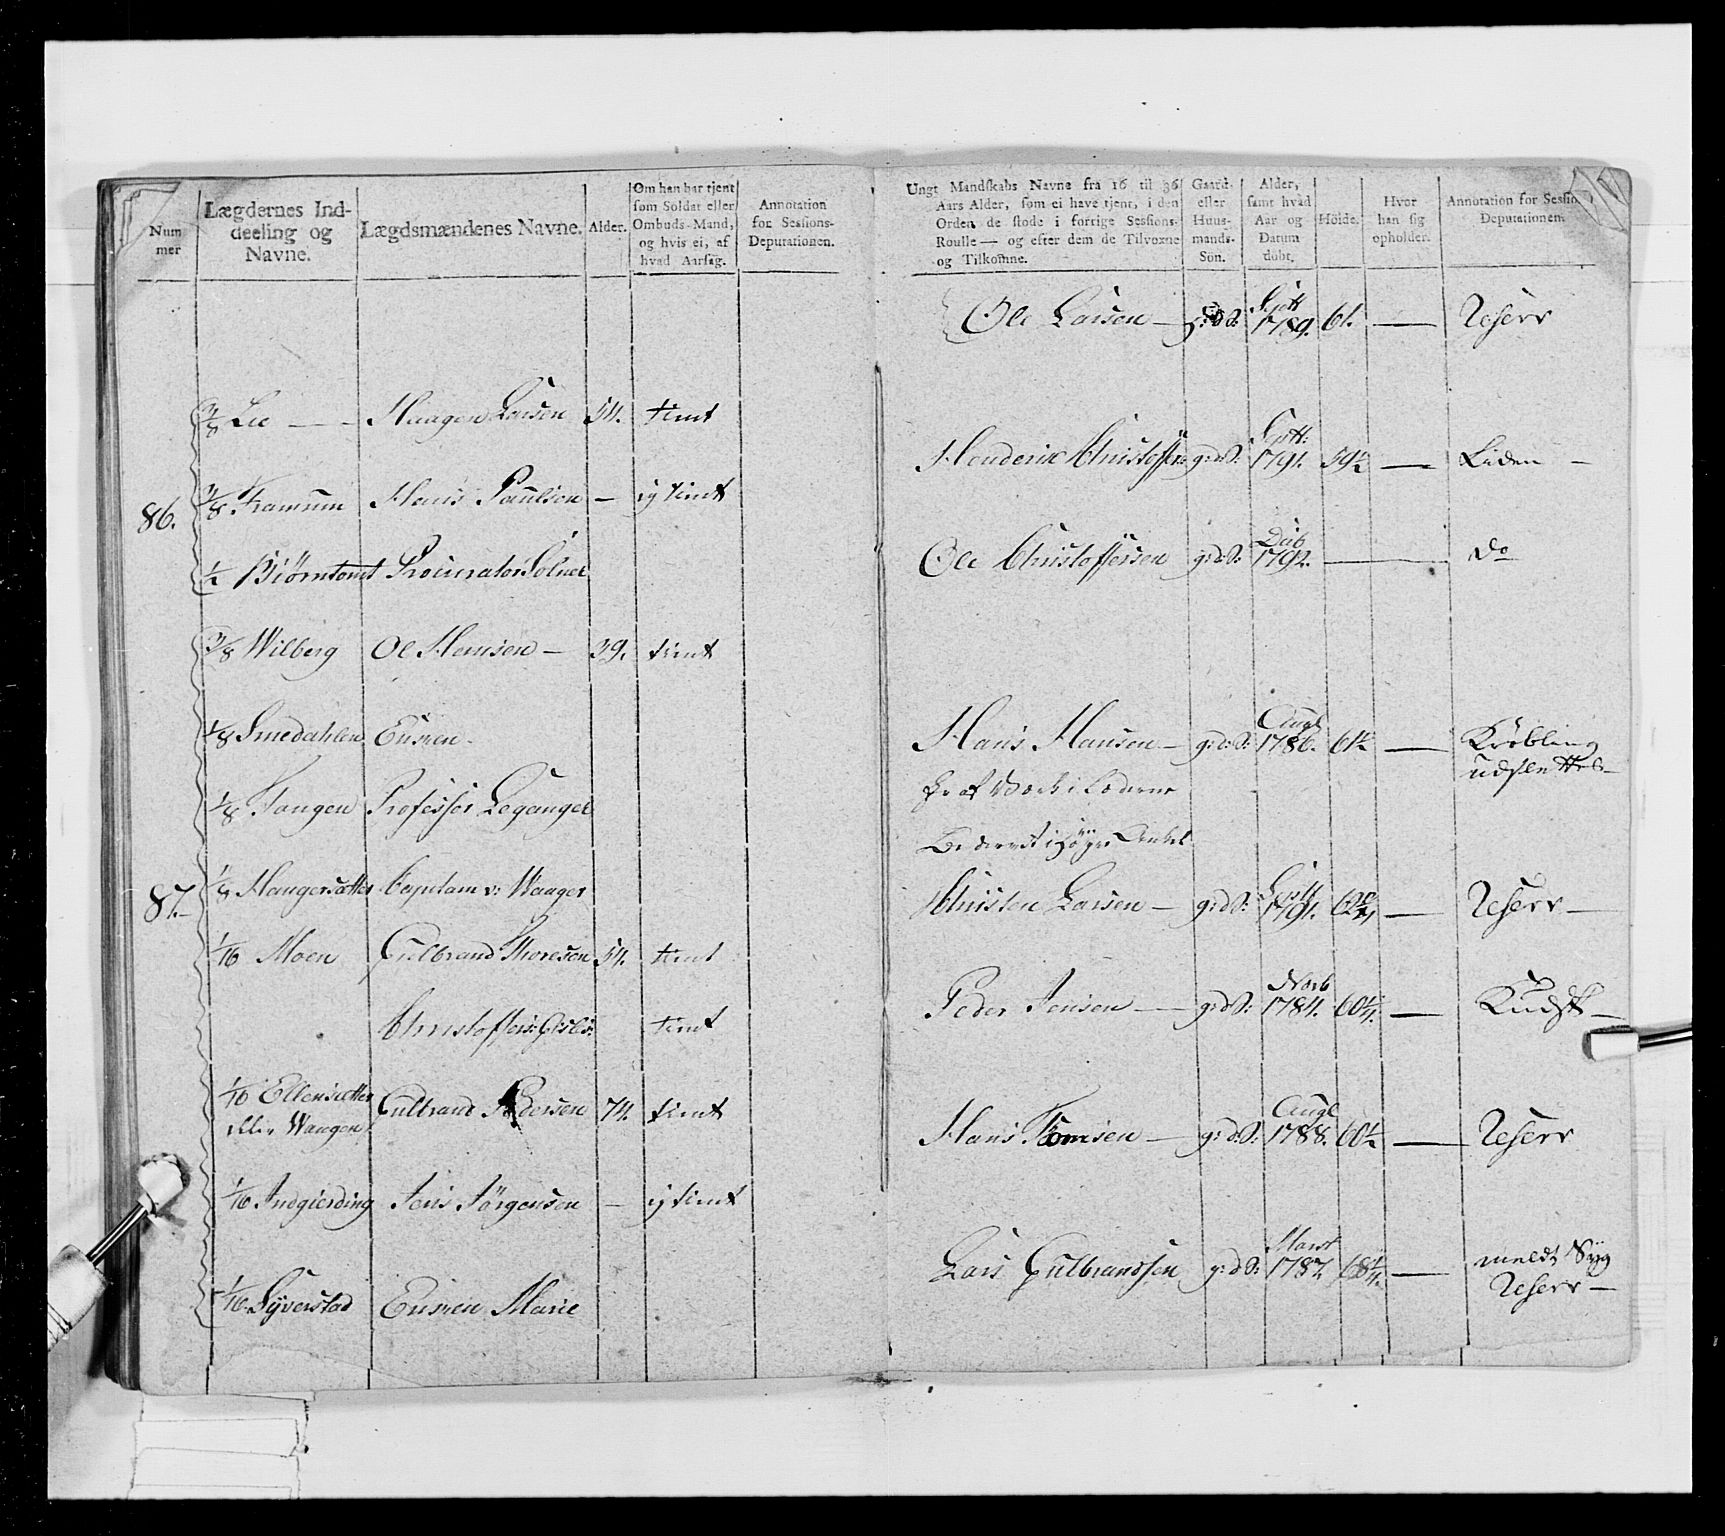 Num
mer
Lægdernes Ind-
deeling og
Navne.
Lægdsmændenes Navne.
Alder.
Om han har tjent
som Soldat eller
Ombuds-Mand,
og hvis ei, af
hvad Aarsag.
Annotation
for Sessions-
Deputationen.
86.
3/8 Lie — Haagen Larsen 54. tient
3/8 Framum Hans Paulsen — ej tient
1/2 Biørntomt Procurator Solner
87.
3/8 Wilberg Ole Hansen — 39. tient
1/8 Smedahlen Enken
1/8 Tangen Professor Leganger
1/8 Haugersætter Capitain v: Waager
1/16 Moen Gulbrand Thoresen 54. tient
Christoffer tient
1/16 Ellensætter Gulbrand Pedersen 74. tient
eller Waagen
1/16 Indgierding Jens Jørgensen — ej tient
1/16 Syverstad Enken Marie
Ungt Mandskabs Navne fra 16 til 36
Aars Alder, som ei have tjent, i den
Orden de stode i forrige Sessions-
Roulle — og efter dem de Tilvoxne
og Tilkomne.
Gaard-
eller
Huus-
mands-
Søn.
Alder,
samt hvad
Aar og
Datum
døbt.
Höide.
Hvor
han sig
opholder.
Annotation for Sessions-
Deputationen
Ole Larsen — g:d S: 1789. 61. — Reserv
Henderik Christoffers g:d S: Sept: 1791. 59 1/2 — Liden —
Ole Christoffersen g:d S: 1792. — do
Hans Hansen — g:d S: Aug 1786. 61 1/2 — Krøbling
udslettes —
Christen Larsen — g:d S: Sept 1791. 62 3/4 — Reserv —
Peder Jensen — g:d S: Novb 1784. 60 1/4. — Kudsk —
Hans Tomsen — g:d S: Aug 1788. 60 1/2 — Reserv
Lars Gulbrandsen g:d S: Mart 1787. 68 1/4. — meldt Syg
Reserv —